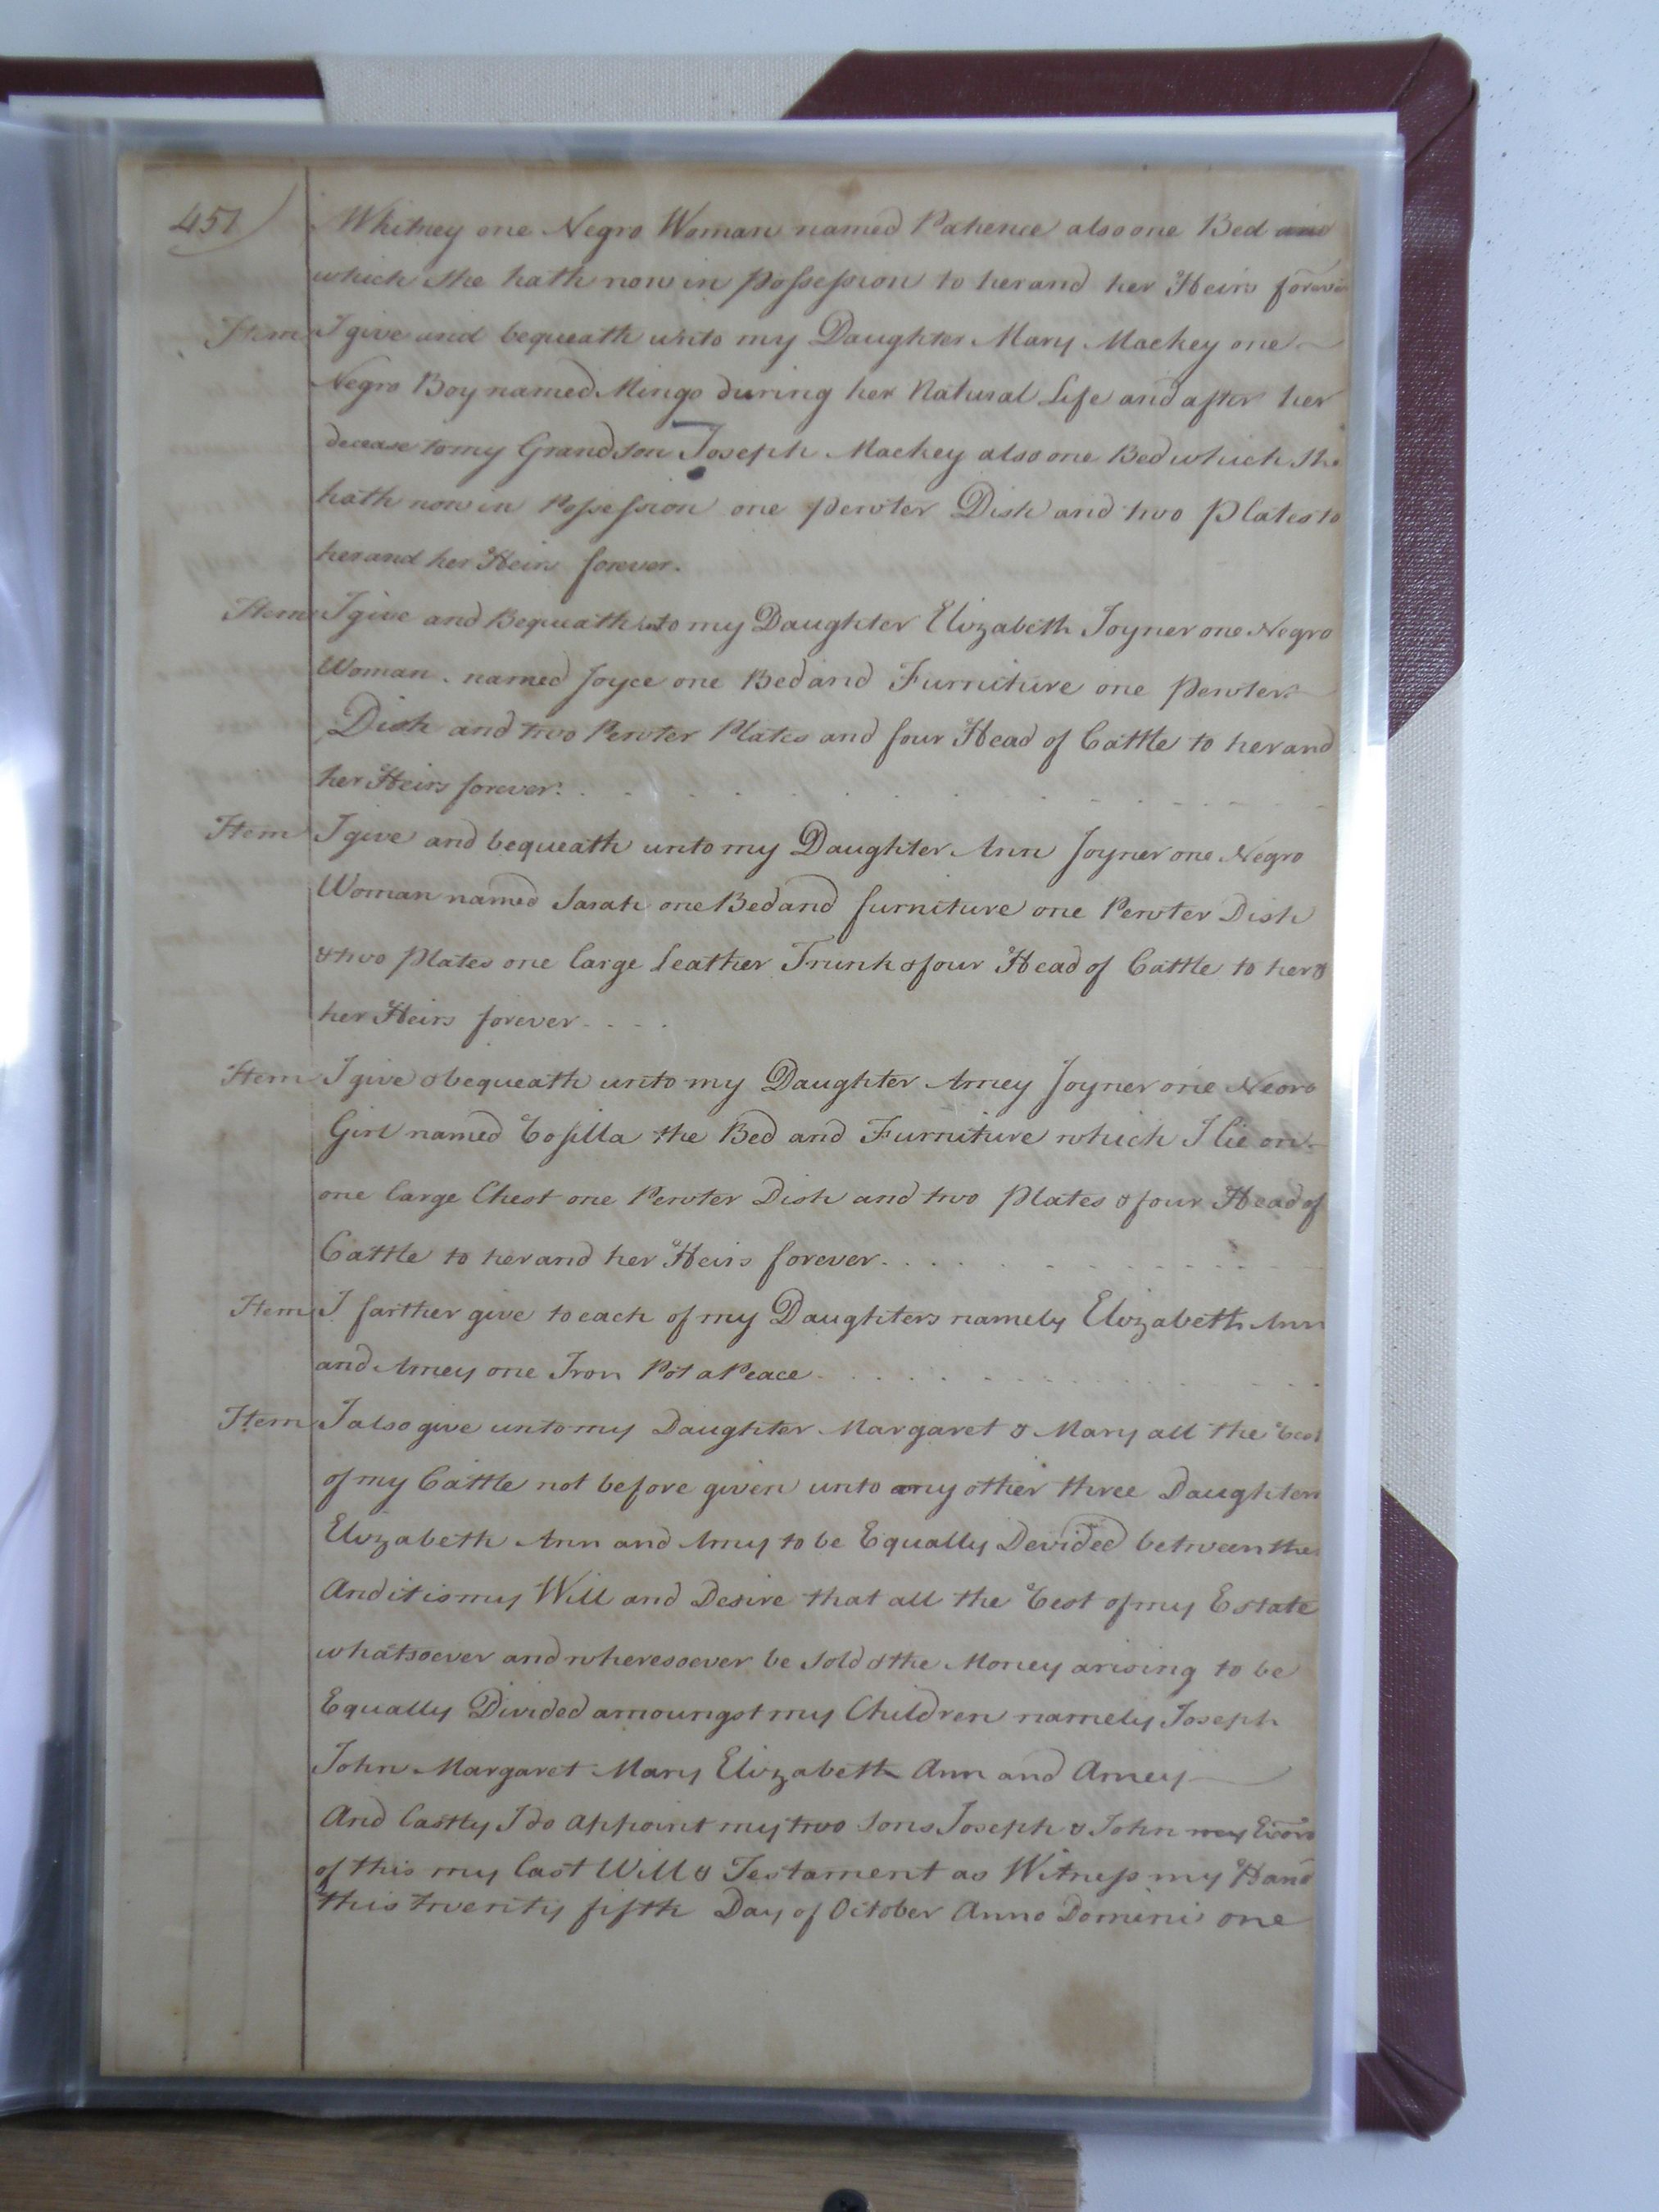 457
Whitney one Negro Woman named Patience also one Bed and
which she hath now in Possession to her and her Heirs forever
Item I give and bequeath unto my Daughter Mary Mackey one
Negro Boy named Mingo during her Natural Life and after her
decease to my Grandson Joseph Mackey also one Bed which she
hath now in Possession one pewter Dish and two Plates to
her and her Heirs forever.
Item I give and Bequeath unto my Daughter Elizabeth Joyner one Negro
Woman named Joyce one Bed and Furniture one Pewter
Dish and two Pewter Plates and four Head of Cattle to her and
her Heirs forever.
Item I give and bequeath unto my Daughter Ann Joyner one Negro
Woman named Sarah one Bed and furniture one Pewter Dish
& two Plates one large Leather Trunk & four Head of Cattle to her &
her Heirs forever
Item I give & bequeath unto my Daughter Amey Joyner one Negro
Girl named the Bed and Furniture which I lie on
one large Chest one Pewter Dish and two Plates & four Head of
Cattle to her and her Heirs forever.
Item I farther give to each of my Daughters namely Elizabeth Ann
and Amey one Iron Pot a Peace
Item I also give unto my Daughter Margaret & Mary all the rest
of my Cattle not before given unto my other three Daughters
Elizabeth Ann and Amy to be Equally Devided between the
And it is my Will and Desire that all the rest of my Estate
whatsoever and wheresoever be sold & the Money arising to be
Equally Divided amoungst my Children namely Joseph
John Margaret Mary Elizabeth Ann and Amey
And lastly I do appoint my two Sons Joseph & John my Exors
of this my last Will & Testament as Witness my Hand
this twenty fifth Day of October Anno Domini one